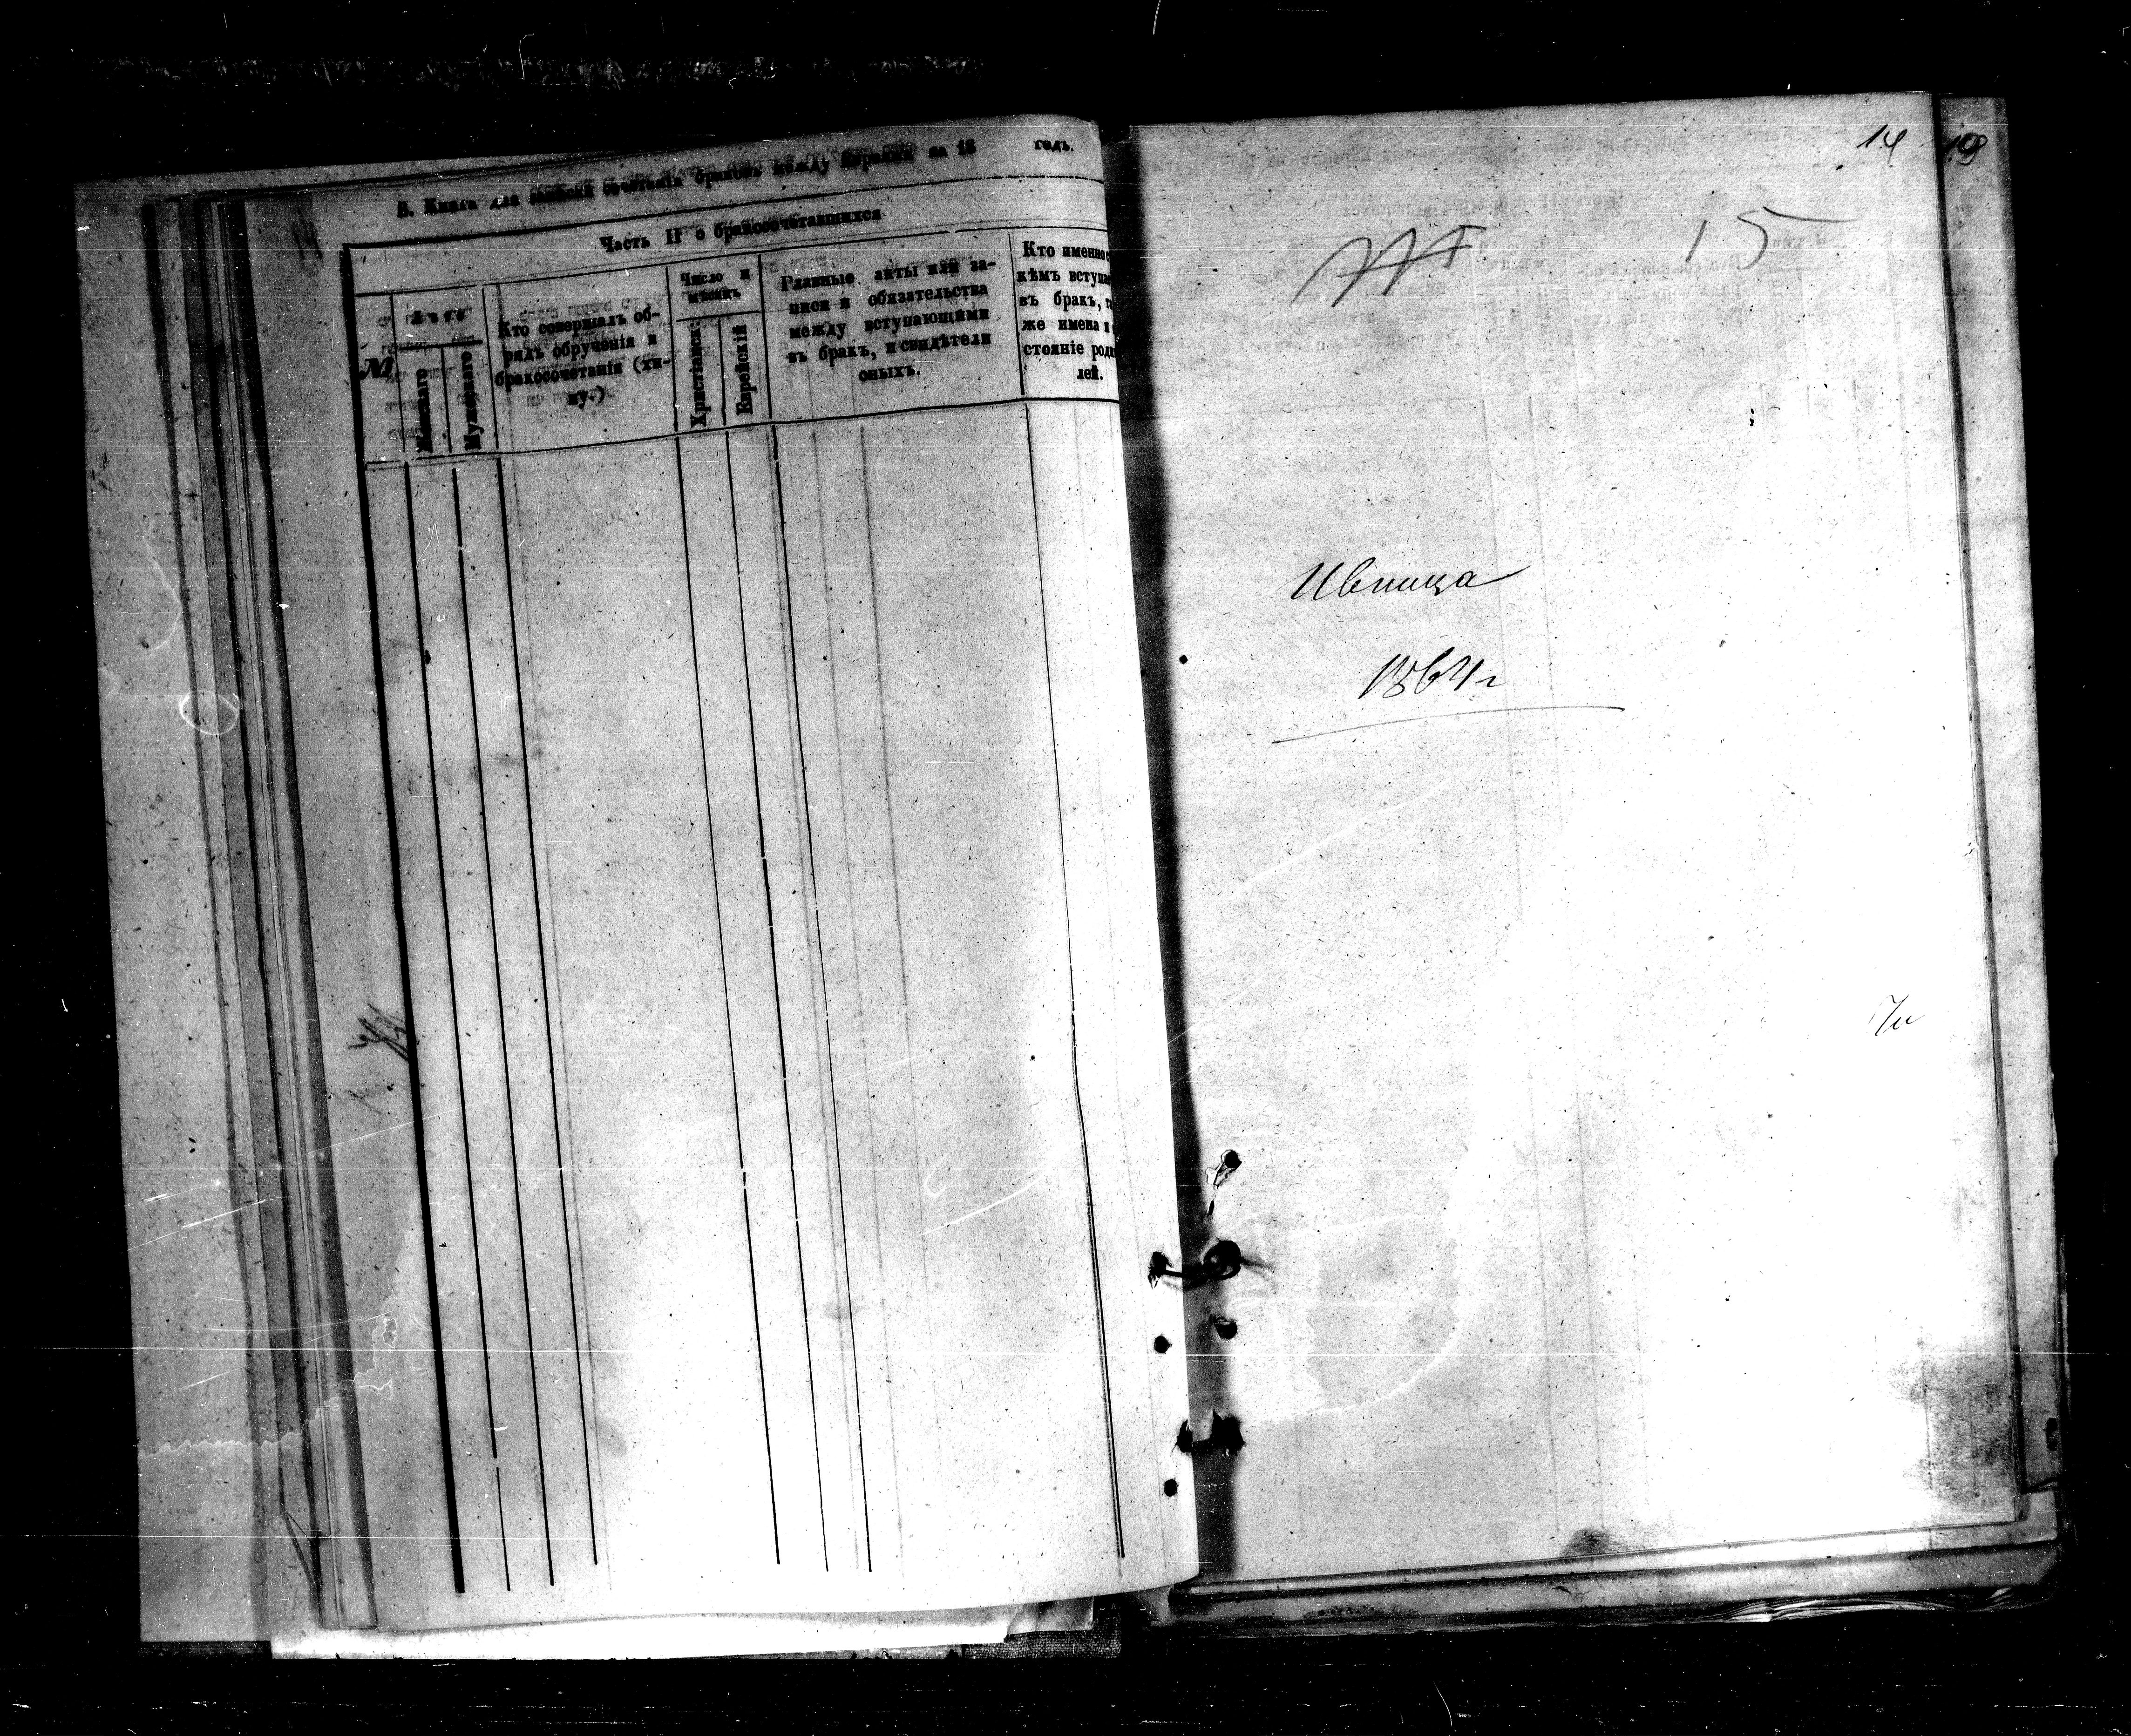 В. Книга для записки сочетанія браковъ между Евреями за 18 годъ.
Часть II о бракосочетавшихся
№
Лѣта
Женскаго
Мужескаго
Кто совершалъ об-
рядъ обрученія и
бракосочетанія (хи-
пу.)
Число и
мѣсяцъ
Христіанск.
Еврейскій
Главные акты или за-
писи и обязательства
между вступающими
въ бракъ, и свидѣтели
оныхъ.
Кто именно
кѣмъ вступ
въ бракъ, т
же имена и
стояніе род
лей.
14 19
15
Ивница
1864 г